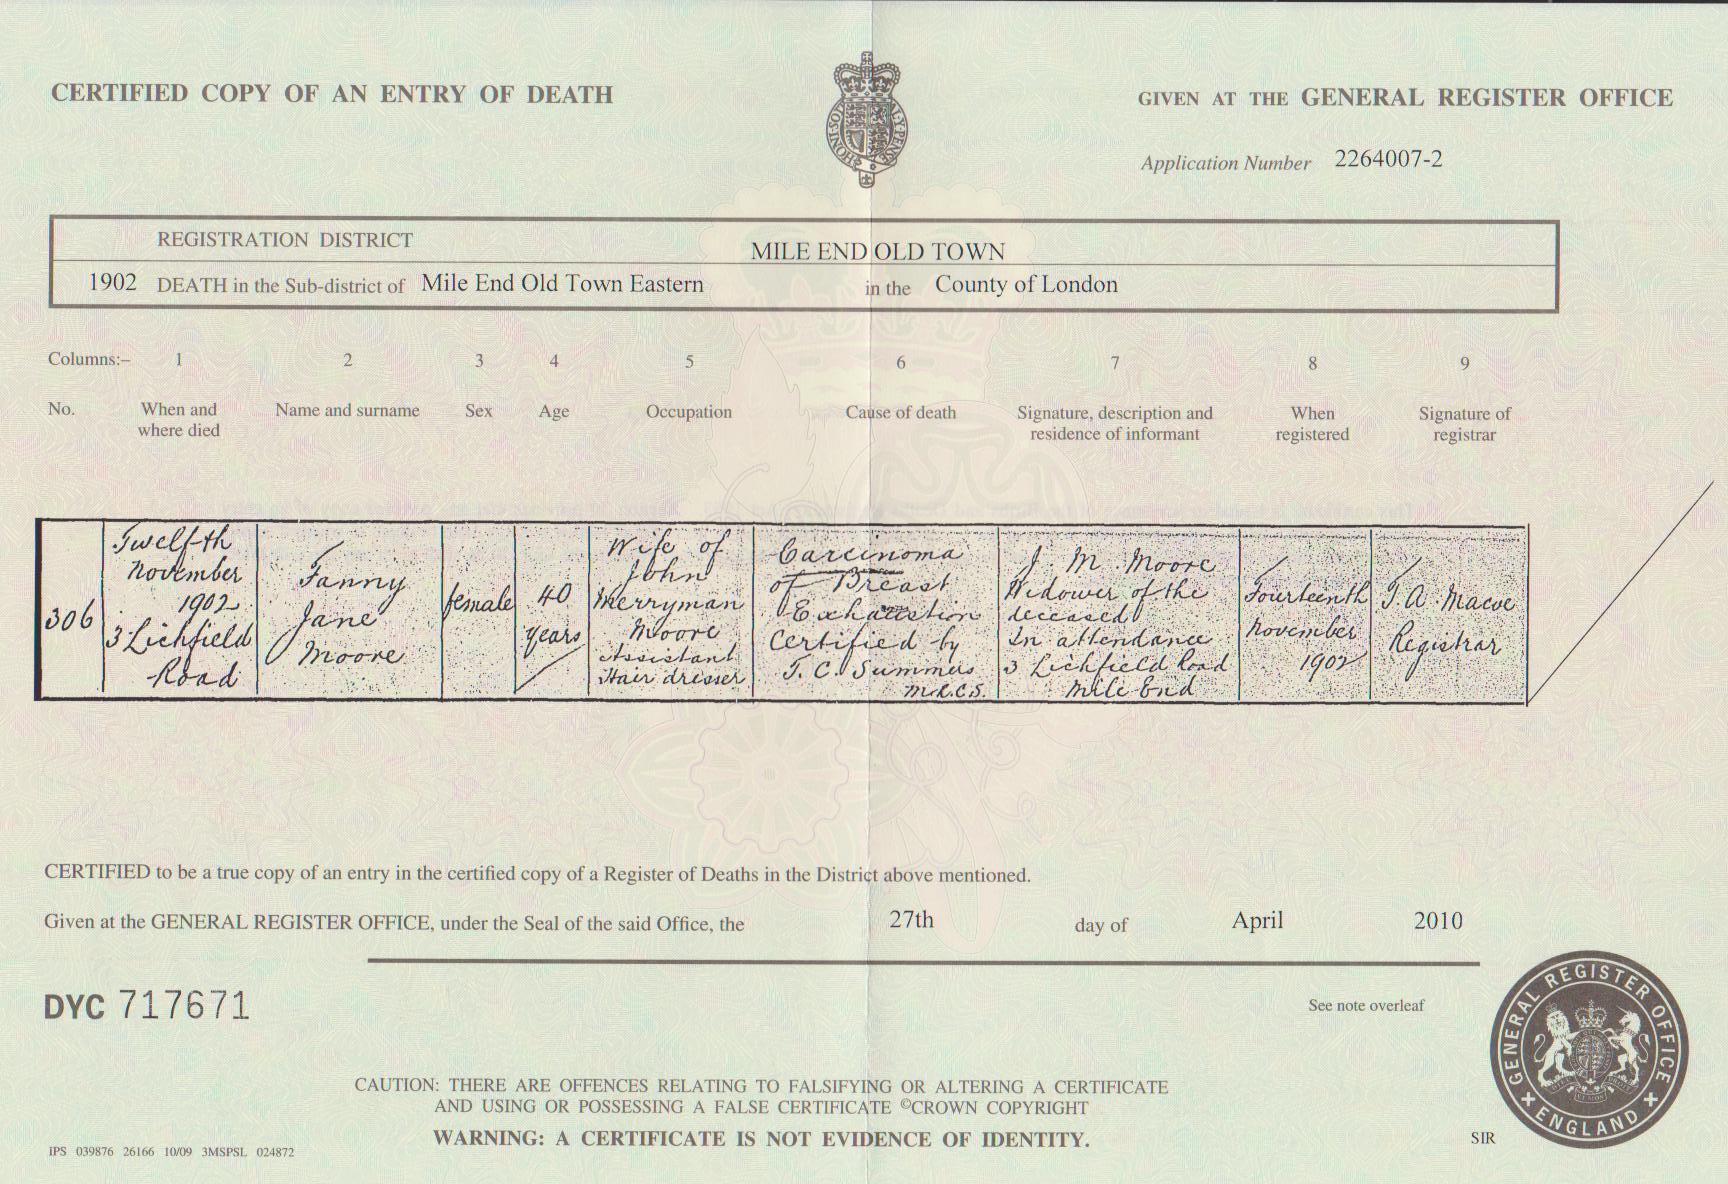 CERTIFIED COPY OF AN ENTRY OF DEATH
GIVEN AT THE GENERAL REGISTER OFFICE
Application Number 2264007-2
REGISTRATION DISTRICT MILE END OLD TOWN
1902 DEATH in the Sub-district of Mile End Old Town Eastern in the County of London
Columns:– 1 2 3 4 5 6 7 8 9
No.
When and
where died
Name and surname
Sex
Age
Occupation
Cause of death
Signature, description and
residence of informant
When
registered
Signature of
registrar
306
Twelfth
November
1902
3 Lichfield
Road
Fanny
Jane
Moore
female
40
years
Wife of
John
Merryman
Moore
Assistant
Hair dresser
Carcinoma
of Breast
Exhaustion
Certified by
T. C. Summers
M.R.C.S.
J. M. Moore
Widower of the
deceased
In attendance
3 Lichfield Road
Mile End
Fourteenth
November
1902
Registrar
CERTIFIED to be a true copy of an entry in the certified copy of a Register of Deaths in the District above mentioned.
Given at the GENERAL REGISTER OFFICE, under the Seal of the said Office, the 27th day of April 2010
DYC 717671
See note overleaf
GENERAL REGISTER OFFICE
ENGLAND
CAUTION: THERE ARE OFFENCES RELATING TO FALSIFYING OR ALTERING A CERTIFICATE
AND USING OR POSSESSING A FALSE CERTIFICATE ©CROWN COPYRIGHT
WARNING: A CERTIFICATE IS NOT EVIDENCE OF IDENTITY.
IPS 039876 26166 10/09 3MSPSL 024872
SIR